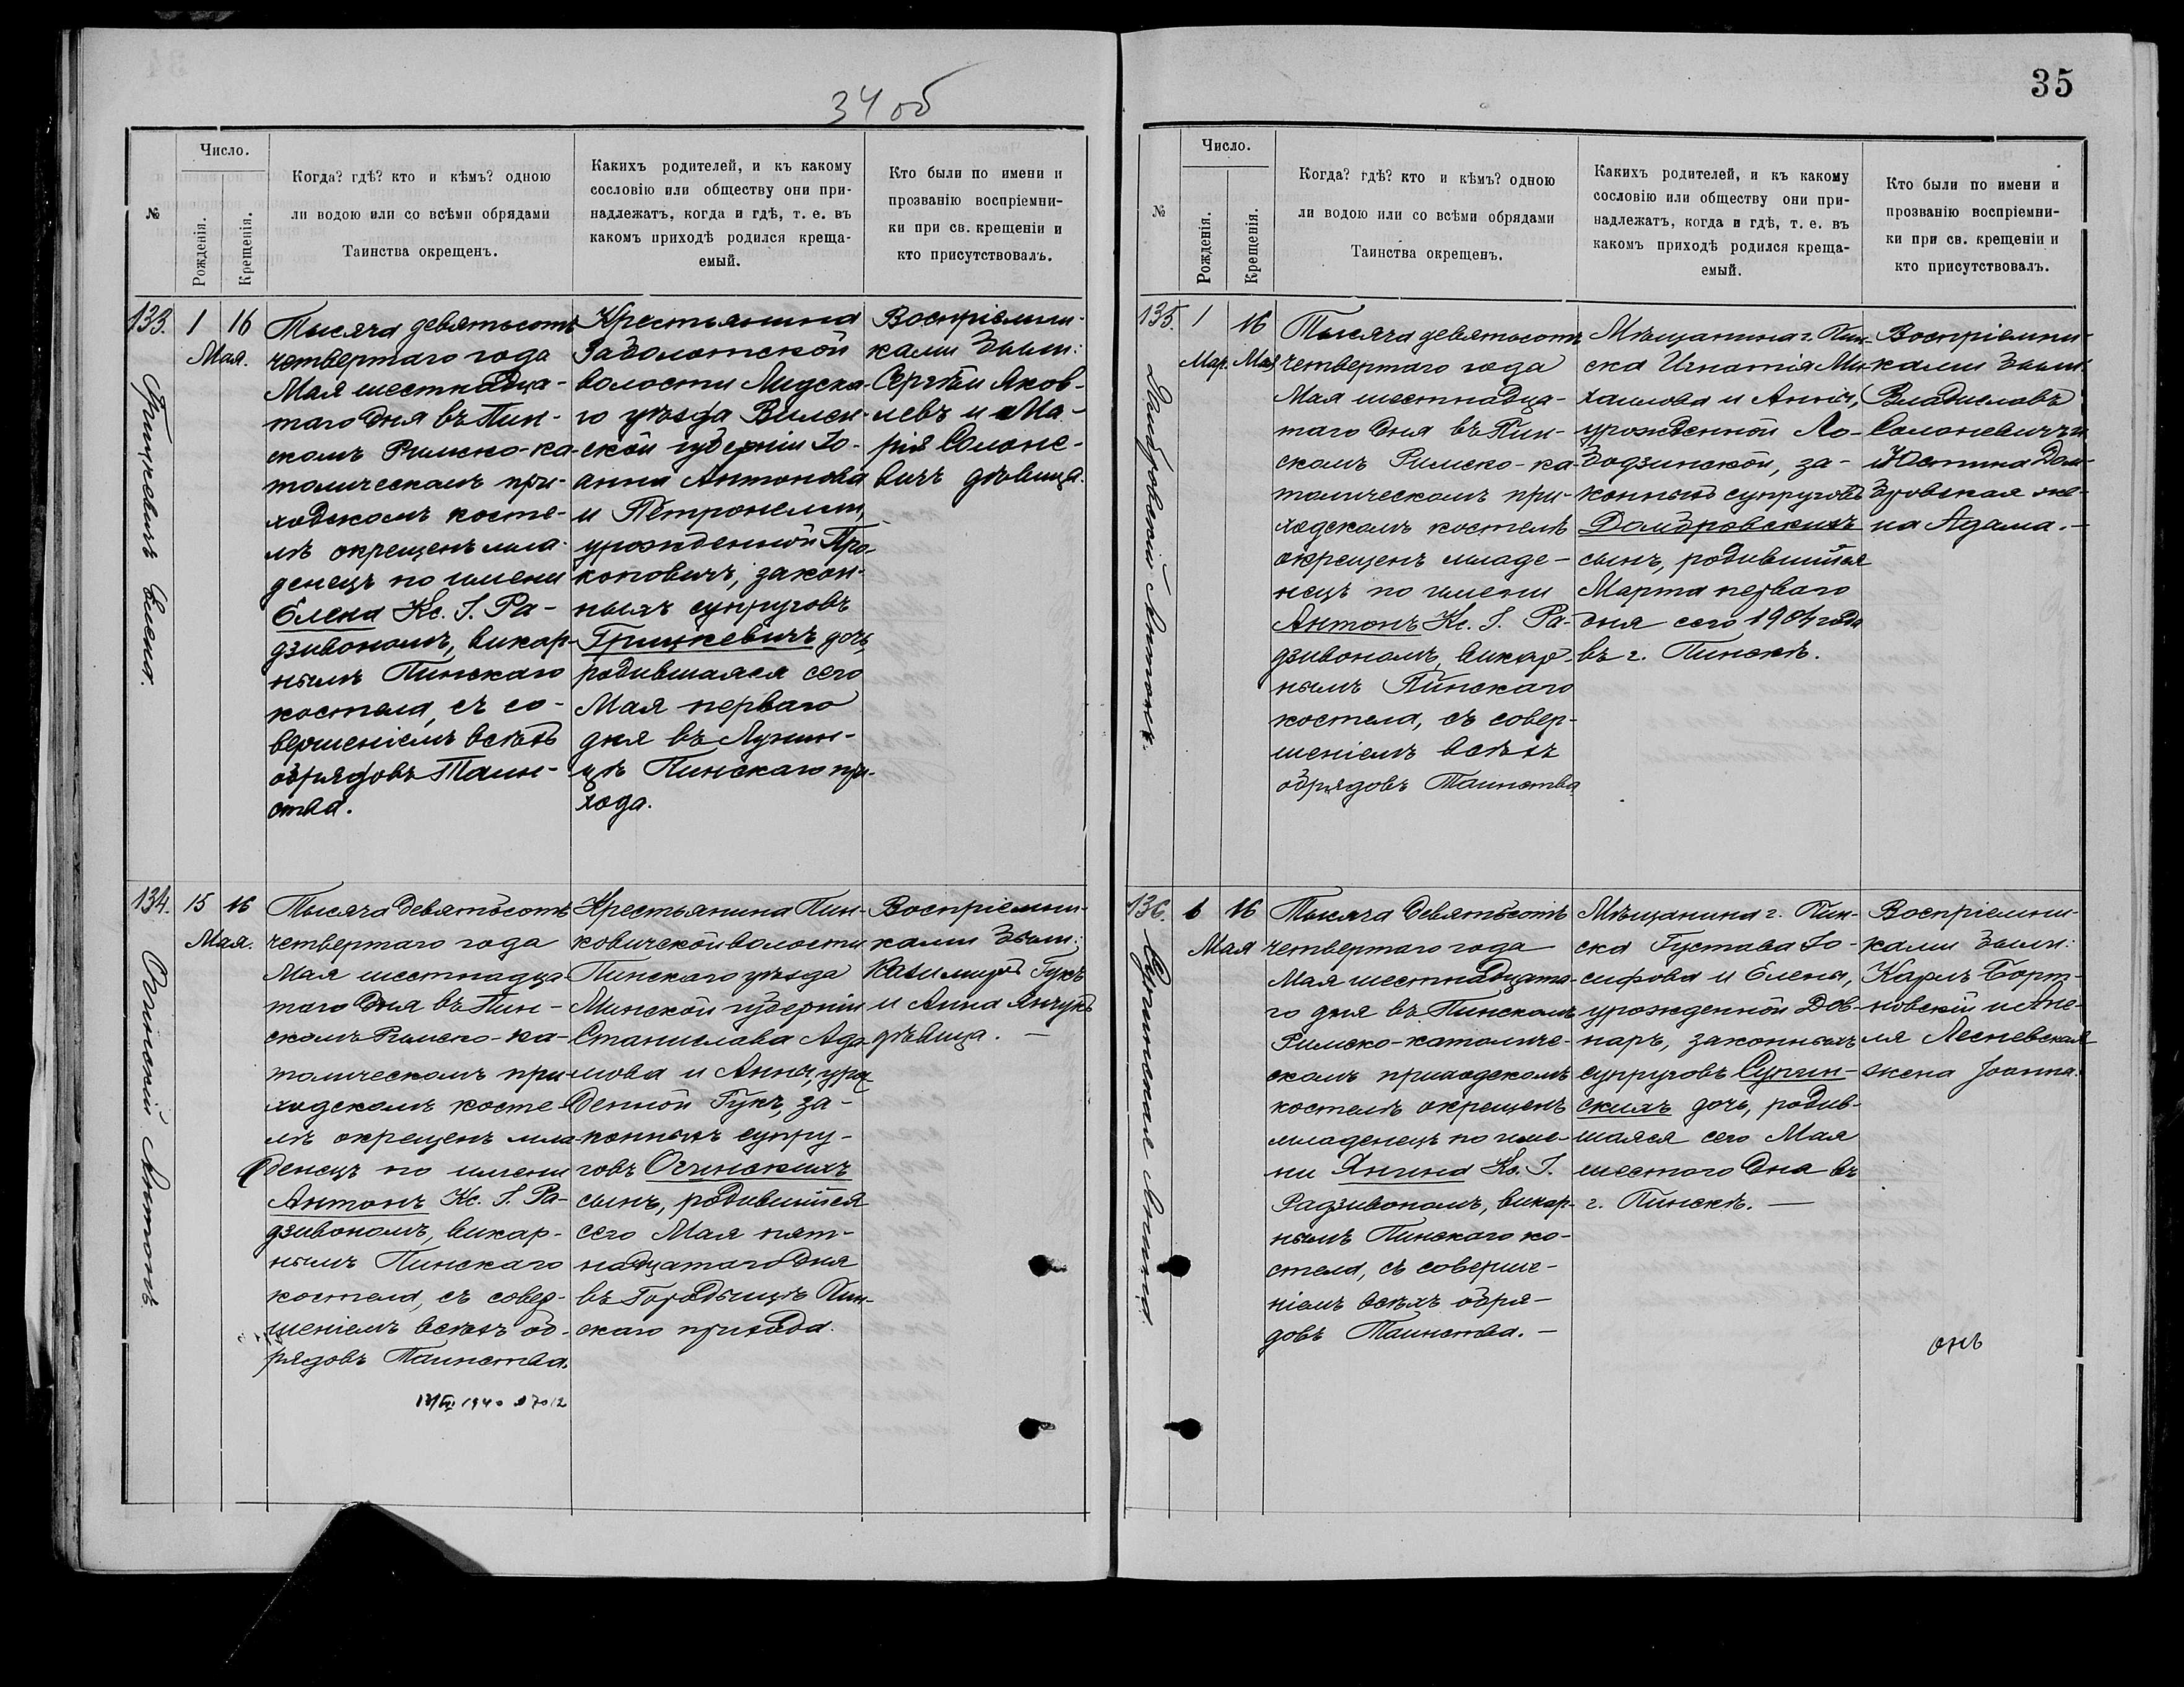 34 об
№
Число.
Рожденія.
Крещенія.
Когда? гдѣ? кто и кѣмъ? одною
ли водою или со всѣми обрядами
Таинства окрещенъ.
Какихъ родителей, и къ какому
сословію или обществу они при-
надлежатъ, когда и гдѣ, т. е. въ
какомъ приходѣ родился креща-
емый.
Кто были по имени и
прозванію воспріемни-
ки при св. крещеніи и
кто присутствовалъ.
133.
Грицкевичъ Елена.
1 16
Мая.
Тысяча девятьсотъ
четвертаго года
Мая шестнадца-
таго дня въ Пин-
скомъ Римско-ка-
толическомъ при-
ходскомъ косте-
лѣ окрещенъ мла-
денецъ по имени
Елена Кс. І. Ра-
дзивономъ, викар-
нымъ Пинскаго
костела, съ со-
вершеніемъ всѣхъ
обрядовъ Таин-
ства.
Крестьянина
Заболотской
волости Лидска-
го уѣзда Вилен-
ской губерніи Іо-
анна Антонова
и Петронели,
урожденной Про-
коповичъ, закон-
ныхъ супруговъ
Грицкевичъ дочь,
родившаяся сего
Мая перваго
дня въ Лунин-
цѣ Пинскаго при-
хода.
Воспріемни-
ками были:
Сергѣй Яков-
левъ и Ма-
рія Солоне-
вичъ дѣвица.
134.
Огинскій Антонъ
15 16
Мая.
Тысяча девятьсотъ
четвертаго года
Мая шестнадца-
таго дня въ Пин-
скомъ Римско-ка-
толическомъ при-
ходскомъ косте-
лѣ окрещенъ мла-
денецъ по имени
Антонъ Кс. І. Ра-
дзивономъ, викар-
нымъ Пинскаго
костела, съ совер-
шеніемъ всѣхъ об-
рядовъ Таинства.
1940 7012
Крестьянина Пин-
ковичской волости
Пинскаго уѣзда
Минской губерніи
Станислава Ада-
мова и Анны, урож-
денной Гукъ, за-
конныхъ супру-
говъ Огинскихъ
сынъ, родившійся
сего Мая пят-
надцатаго дня
въ Городищѣ Пин-
скаго прихода.
Воспріемни-
ками были:
Казимиръ Гукъ
и Анна Янчукъ
дѣвица. —
35
№
Число.
Рожденія.
Крещенія.
Когда? гдѣ? кто и кѣмъ? одною
ли водою или со всѣми обрядами
Таинства окрещенъ.
Какихъ родителей, и къ какому
сословію или обществу они при-
надлежатъ, когда и гдѣ, т. е. въ
какомъ приходѣ родился креща-
емый.
Кто были по имени и
прозванію воспріемни-
ки при св. крещеніи и
кто присутствовалъ.
135.
Домбровскій Антонъ.
1 16
Мар. Мая
Тысяча девятьсотъ
четвертаго года
Мая шестнадца-
таго дня въ Пин-
скомъ Римско-ка-
толическомъ при-
ходскомъ костелѣ
окрещенъ младе-
нецъ по имени
Антонъ Кс. І. Ра-
дзивономъ, викар-
нымъ Пинскаго
костела, съ совер-
шеніемъ всѣхъ
обрядовъ Таинства.
Мѣщанина г. Пин-
ска Игнатія Ми-
хаилова и Анны,
урожденной Ло-
бодзинской, за-
конныхъ супруговъ
Домбровскихъ
сынъ, родившійся
Марта перваго
дня сего 1904 года
въ г. Пинскѣ.
Воспріемни-
ками были:
Владиславъ
Солоневичъ и
Юстина Дом-
бровская же-
на Адама. —
136.
Сулинская Янина.
6 16
Мая
Тысяча девятьсотъ
четвертаго года
Мая шестнадцата-
го дня въ Пинскомъ
Римско-католиче-
скомъ приходскомъ
костелѣ окрещенъ
младенецъ по име-
ни Янина Кс. І.
Радзивономъ, викар-
нымъ Пинскаго ко-
стела, съ соверше-
ніемъ всѣхъ обря-
довъ Таинства. —
Мѣщанина г. Пин-
ска Густава Іо-
сифова и Елены,
урожденной Дов-
наръ, законныхъ
супруговъ Сулин-
скихъ дочь, родив-
шаяся сего Мая
шестого дня въ
г. Пинскѣ. —
Воспріемни-
ками были:
Карлъ Борт-
новскій и Але-
ля Лесневская
жена Іоанна.
онъ